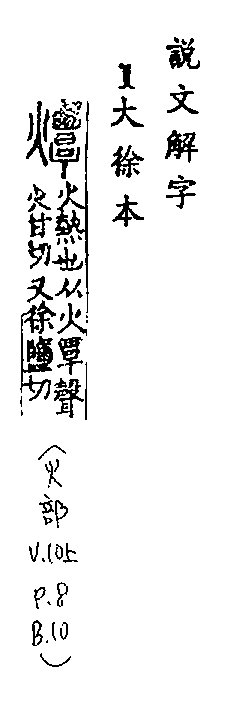 説文解字
1大徐本
燂火熱也从火覃聲
火甘切又徐鹽切
(火部 V.10上 P.8 B.10)